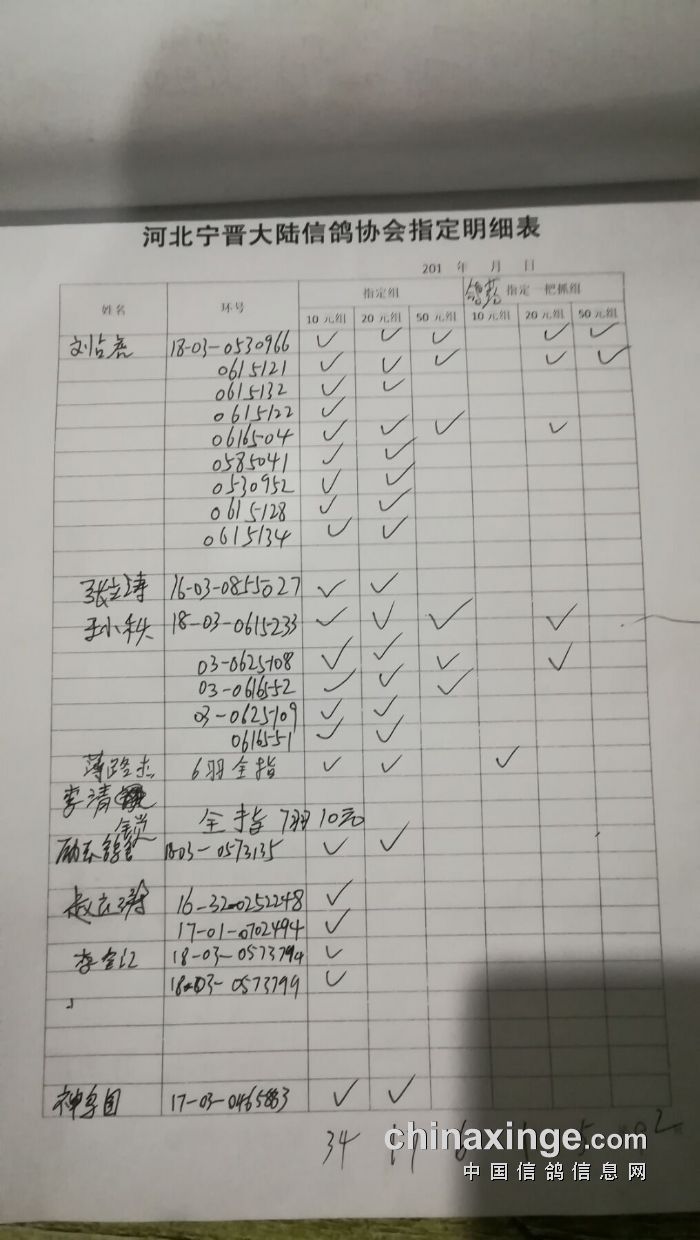 河北宁晋大陆信鸽协会指定明细表
201 年 月 日
姓名 环号 指定组 指定一把抓组
10元组 20元组 50元组 10元组 20元组 50元组
18-03-0530966 ✓ ✓ ✓ ✓ ✓
0615121 ✓ ✓ ✓ ✓ ✓
0615132 ✓ ✓
0615122 ✓
0616504 ✓ ✓ ✓ ✓
0585041 ✓ ✓
0530952 ✓ ✓
0615128 ✓ ✓
0615134 ✓ ✓
张立涛 16-03-0855027 ✓ ✓
王小秩 18-03-0615233 ✓ ✓ ✓ ✓
03-0625108 ✓ ✓ ✓ ✓
03-0616552 ✓ ✓ ✓
03-0625109 ✓ ✓
0616551 ✓ ✓
薄路杰 6羽全指 ✓ ✓ ✓
李清
锁 全指 7羽10元
18-03-0573135 ✓ ✓
16-32-0252248 ✓
17-01-0702494 ✓
李金江 18-03-0573794 ✓
18-03-0573799 ✓
神学团 17-03-0465883 ✓ ✓
34 6 1 5 2
chinaxinge.com
中国信鸽信息网